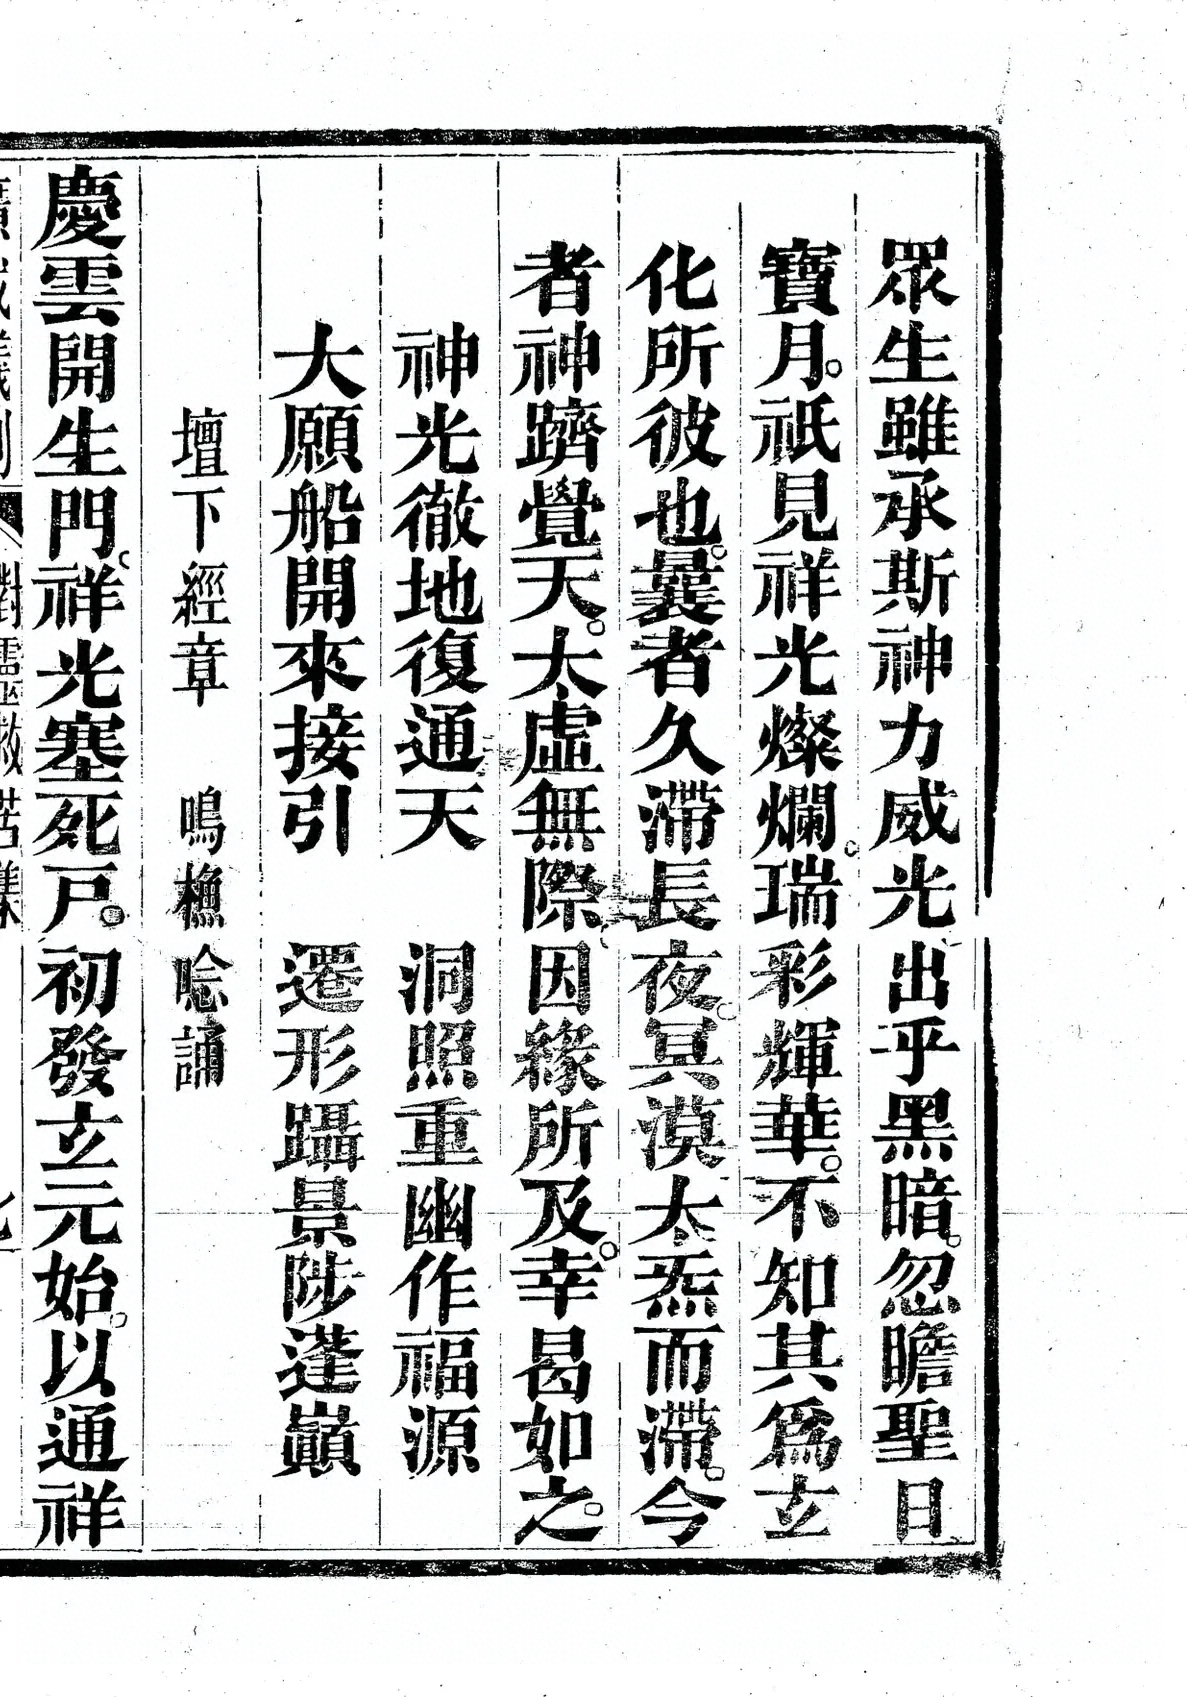 眾生雖承斯神力威光出乎黑暗。忽瞻聖日
寶月。祇見祥光燦爛。瑞彩輝華。不知其為玄
化所彼也。曩者久滯長夜。冥漠太炁而滯。今
者神躋覺天。太虛無際。因緣所及。幸曷如之。
神光徹地復通天　洞照重幽作福源
大願船開來接引　遷形躡景陟蓬巔
壇下經章　鳴樵唸誦
慶雲開生門。祥光塞死戶。初發玄元始。以通祥